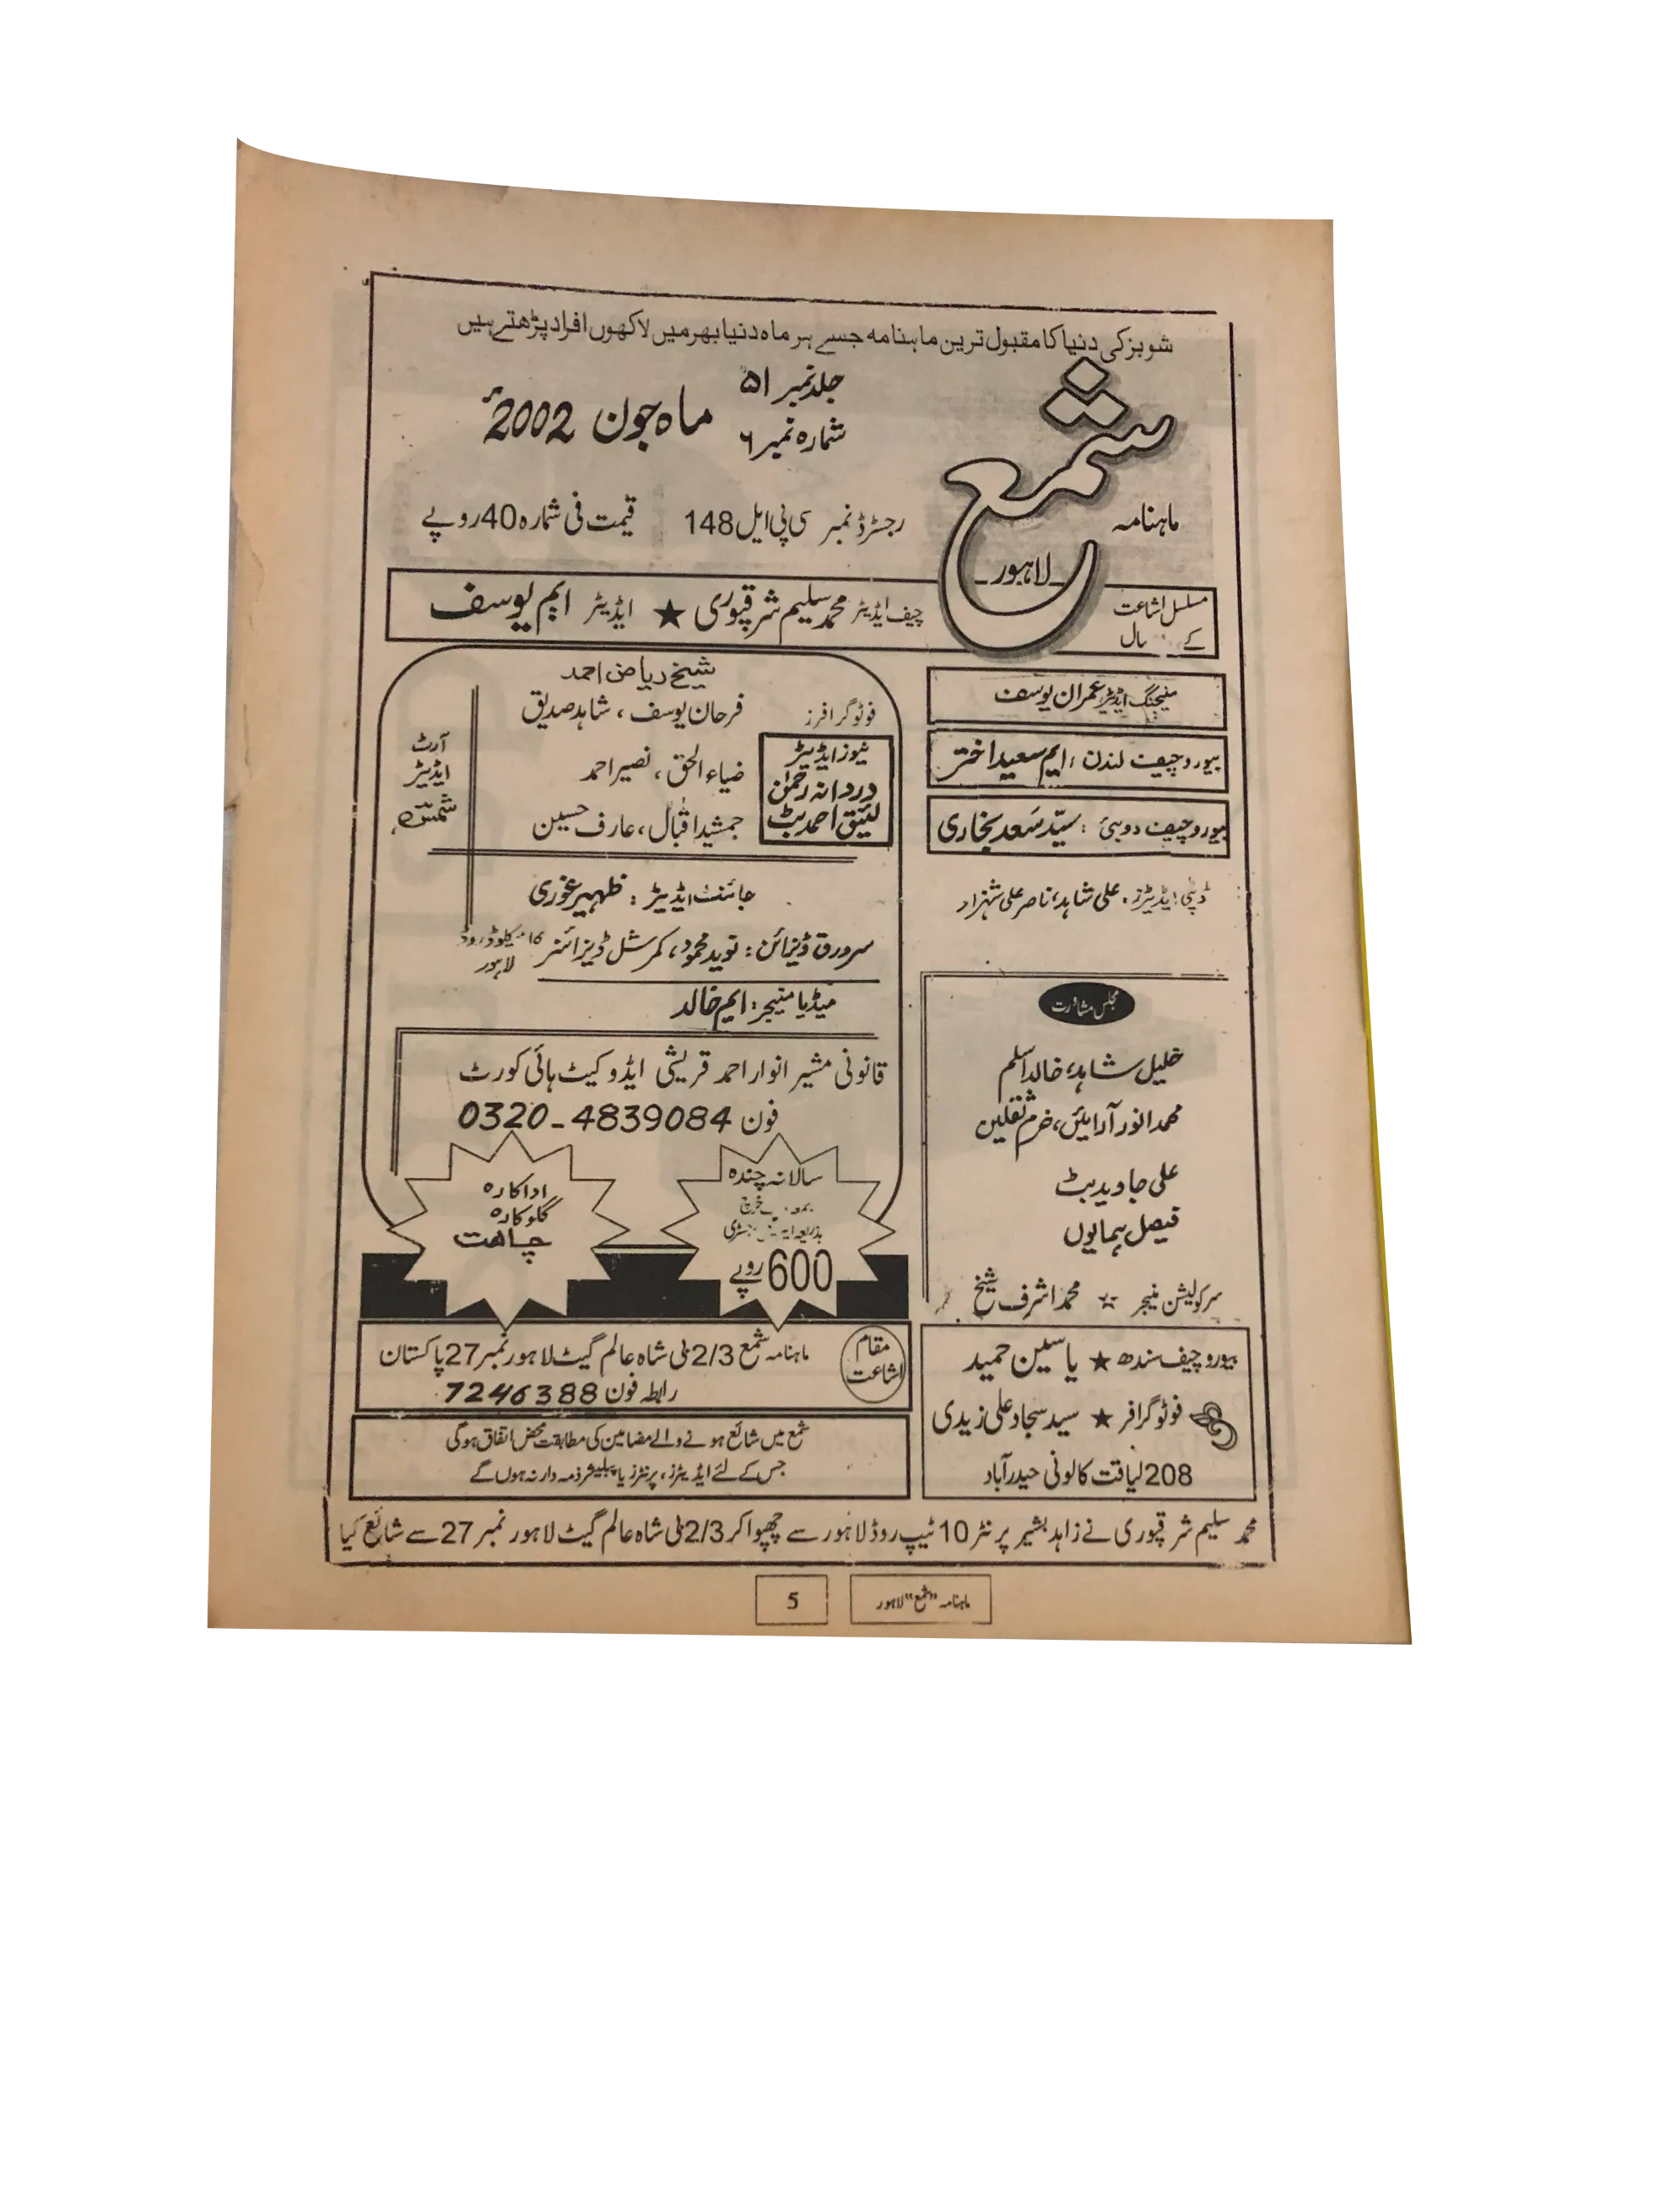 شوبز کی دنیا کا مقبول ترین ماہنامہ جسے ہر ماہ دنیا بھر میں لاکھوں افراد پڑھتے ہیں
ماہنامہ
شمع
لاہور
جلد نمبر ۵۱
شمارہ نمبر ۶
ماہ جون 2002ء
رجسٹرڈ نمبر سی پی ایل 148
قیمت فی شمارہ 40 روپے
مسلسل اشاعت
کے سال
چیف ایڈیٹر محمد سلیم شرقپوری ★ ایڈیٹر ایم یوسف
منیجنگ ایڈیٹر عمران یوسف
بیورو چیف لندن : ایم سعید اختر
بیورو چیف دوبئی : سیّد سَعد بخاری
ڈپٹی ایڈیٹرز . علی شاہد، ناصر علی شہزاد
مجلس مشاورت
خلیل شاہد، خالد اسلم
محمد انور آرائیں، خرم ثقلین
علی جاوید بٹ
فیصل ہمایوں
سرکولیشن منیجر ☆ محمد اشرف شیخ
بیورو چیف سندھ ★ یاسین حمید
فوٹوگرافر ★ سید سجاد علی زیدی
208 لیاقت کالونی حیدرآباد
شیخ ریاض احمد
فوٹوگرافرز
فرحان یوسف ، شاہد صدیق
ضیاء الحق ، نصیر احمد
جمشید اقبال ، عارف حسین
نیوز ایڈیٹر
دردانہ رحمٰن
لئیق احمد بٹ
آرٹ
ایڈیٹر
شمسؔ
جائنٹ ایڈیٹر : ظہیر غوری
سرورق ڈیزائن : نوید محمود، کمرشل ڈیزائنر میکلوڈ روڈ
لاہور
میڈیا منیجر : ایم خالد
قانونی مشیر انوار احمد قریشی ایڈوکیٹ ہائی کورٹ
فون 0320-4839084
سالانہ چندہ
خرچ
بذریعہ
600 روپے
اداکارہ
گلوکارہ
چاہت
مقام
اشاعت
ماہنامہ شمع 2/3 بلی شاہ عالم گیٹ لاہور نمبر 27 پاکستان
رابطہ فون 7246388
شمع میں شائع ہونے والے مضامین کی مطابقت محض اتفاق ہوگی
جس کے لئے ایڈیٹرز، پرنٹرز یا پبلیشر ذمہ دار نہ ہوں گے
محمد سلیم شرقپوری نے زاہد بشیر پرنٹر 10 ٹیپ روڈ لاہور سے چھپوا کر 2/3 بلی شاہ عالم گیٹ لاہور نمبر 27 سے شائع کیا
ماہنامہ "شمع" لاہور
5